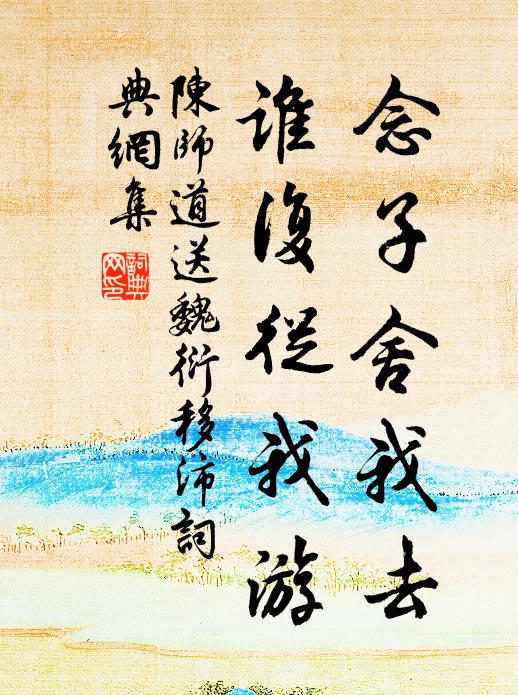 念子舍我去
誰復從我游
陳師道送魏衍移沛詞
典網集
詞典
网印